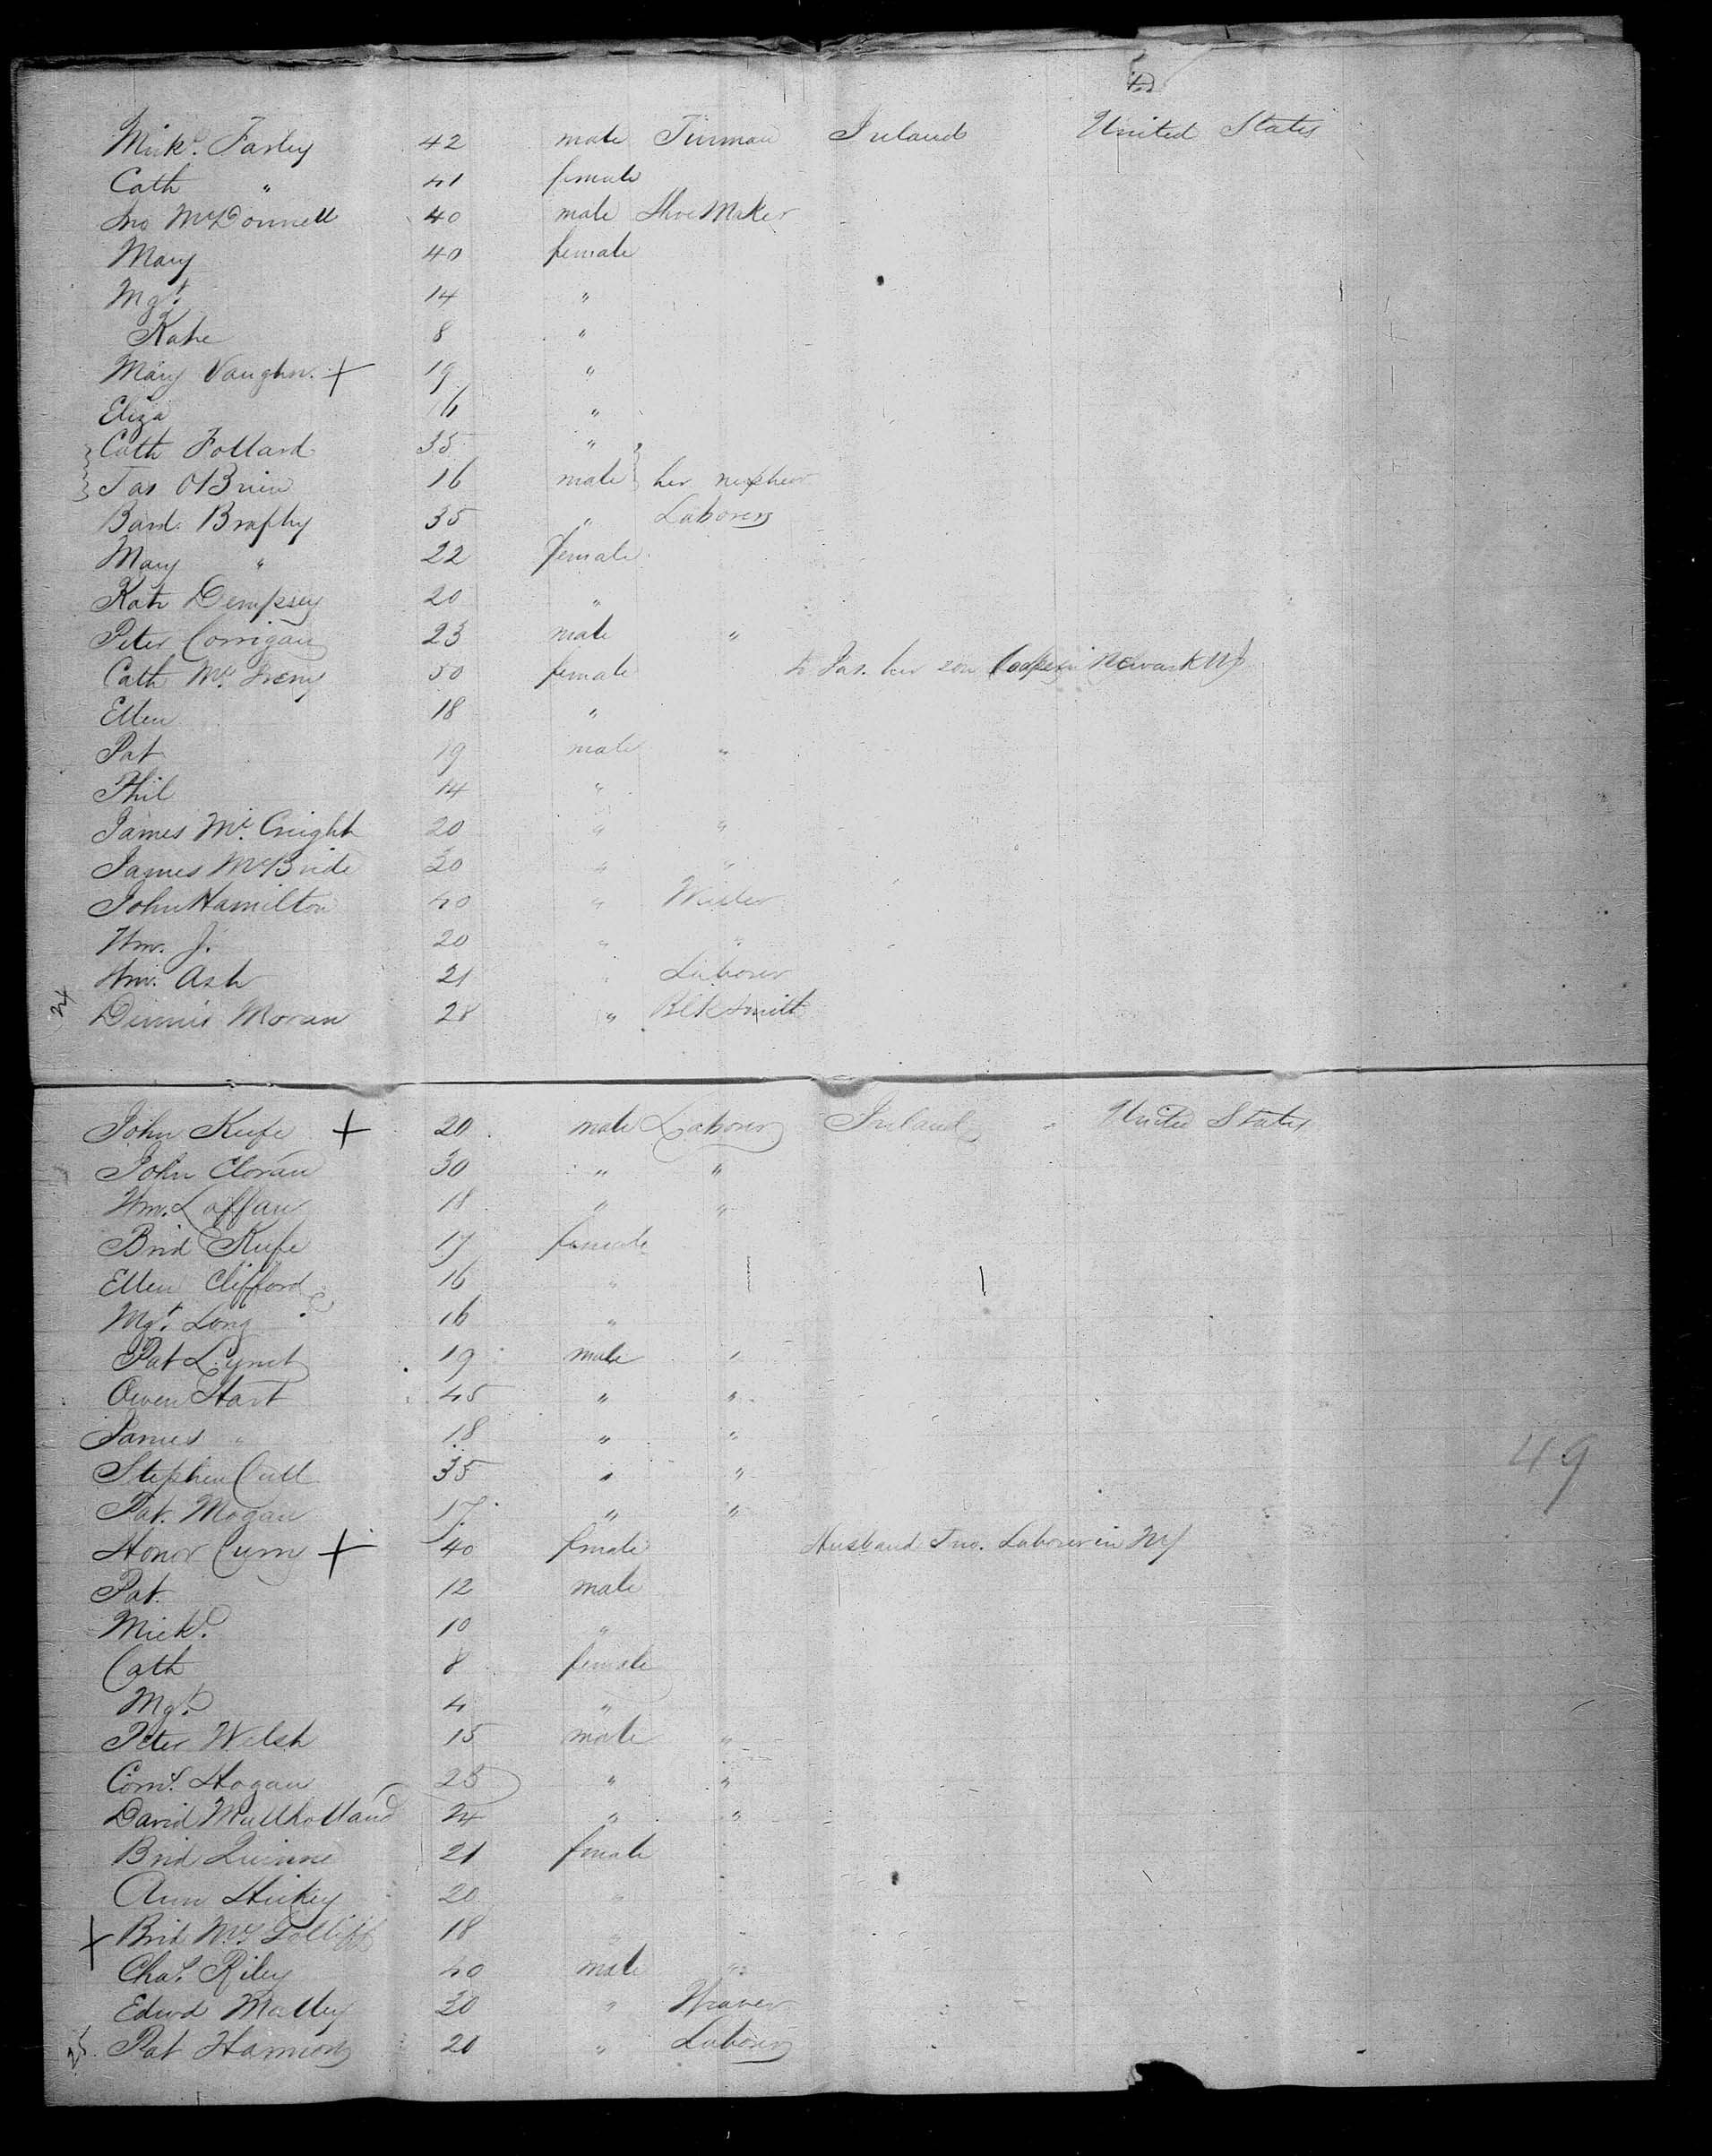 Mick. Farley 42 male Tinman Ireland United States
Cath " 41 female
Jno McDonnell 40 male Shoe Maker
Mary 40 female
Mgt. 14 "
Kate 8 "
Mary Vaughn. + 19 "
Eliza 16 "
Cath Follard 35 "
Jas OBrien 16 male her nephew
Barnd. Brophy 35 " Laborer
Mary " 22 female
Kate Dempsey 20 "
Peter Corrigan 23 male "
Cath Mc 50 female to Jas. her son Newark NJ
Ellen 18 "
Pat 19 male "
Phil 14 "
James Mc. Cnight 20 " "
James McBride 20 " "
John Hamilton 40 "
Wm. J. 20 " "
Wm. Ash 21 " Laborer
24 Dennis Moran 28 " Blksmith
John Keefe + 20 male Laborer Ireland United States
John Cloran 30 " "
Wm. Laffan 18 " "
Brid Keefe 17 female
Ellen Clifford 16 "
Mgt. Long 16 "
Pat Lynch 19 male "
Owen Hart 45 " "
James " 18 " "
Stephen Cull 35 " "
49
Pat. Mogan 17 " "
Honor Curry + 40 female Husband Jno. Laborer in NY
Pat. 12 male
Mick. 10 "
Cath 8 female
Mgt. 4 "
Peter Welsh 15 male "
Corns. Hogan 23 " "
David Mullholland 24 " "
Brid Quinne 21 female
Ann Hickey 20 "
+ Brid Mc. 18 "
Chas. Riley 40 male "
Edwd Malley 30 " Weaver
25 Pat Hannon 20 " Laborer